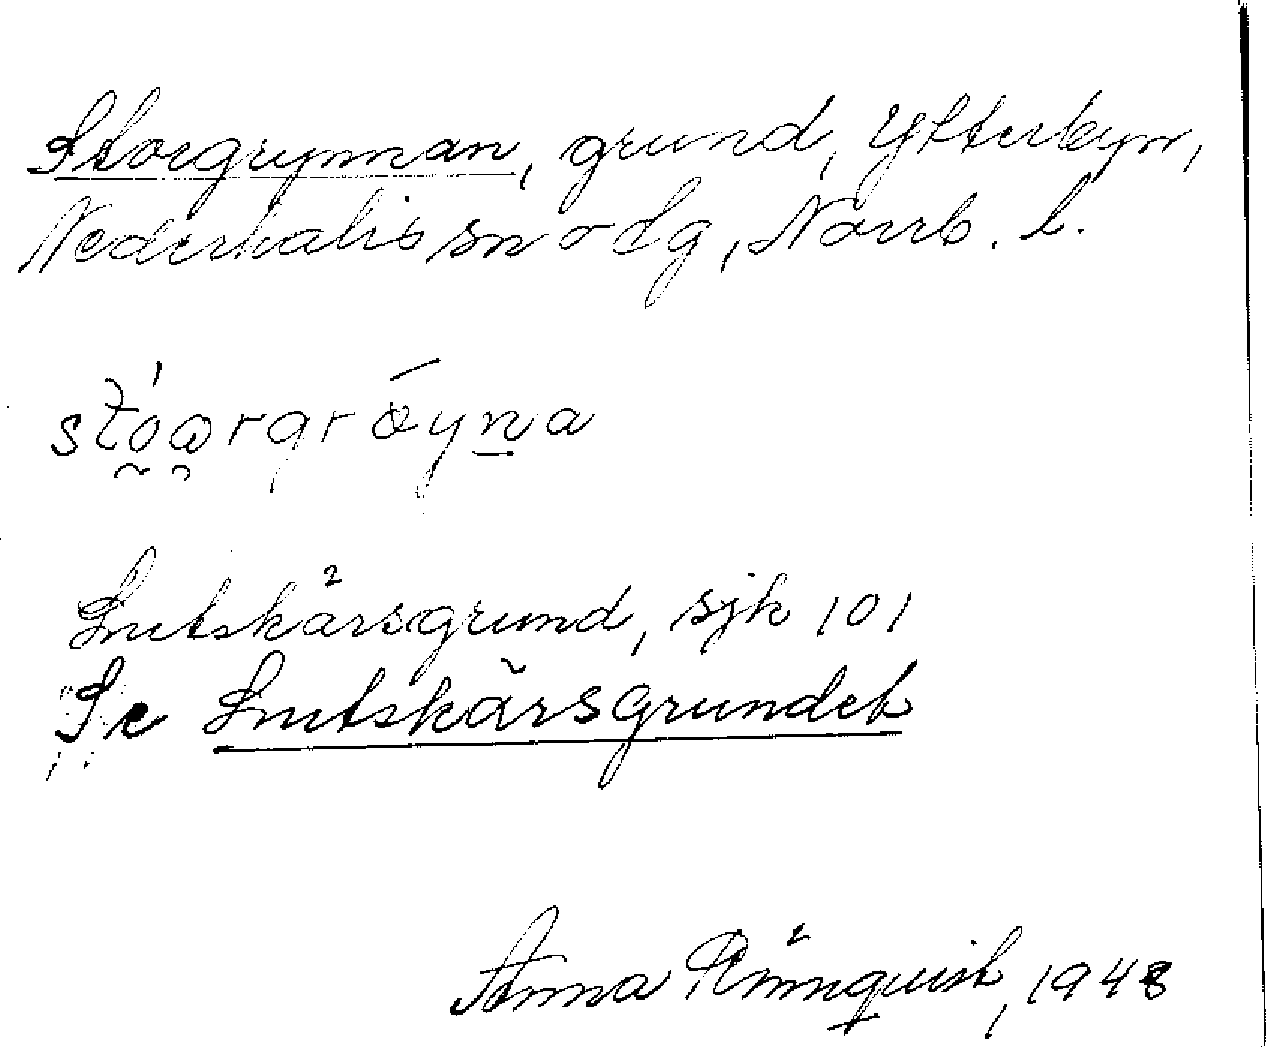 Storgrynnan, grund, Ytterbyn,
Nederkalix sn o dg, Norrb. l.
Lutskärsgrund, sjk 101
Se Lutskärsgrundet
Anna Rönnquist, 1948